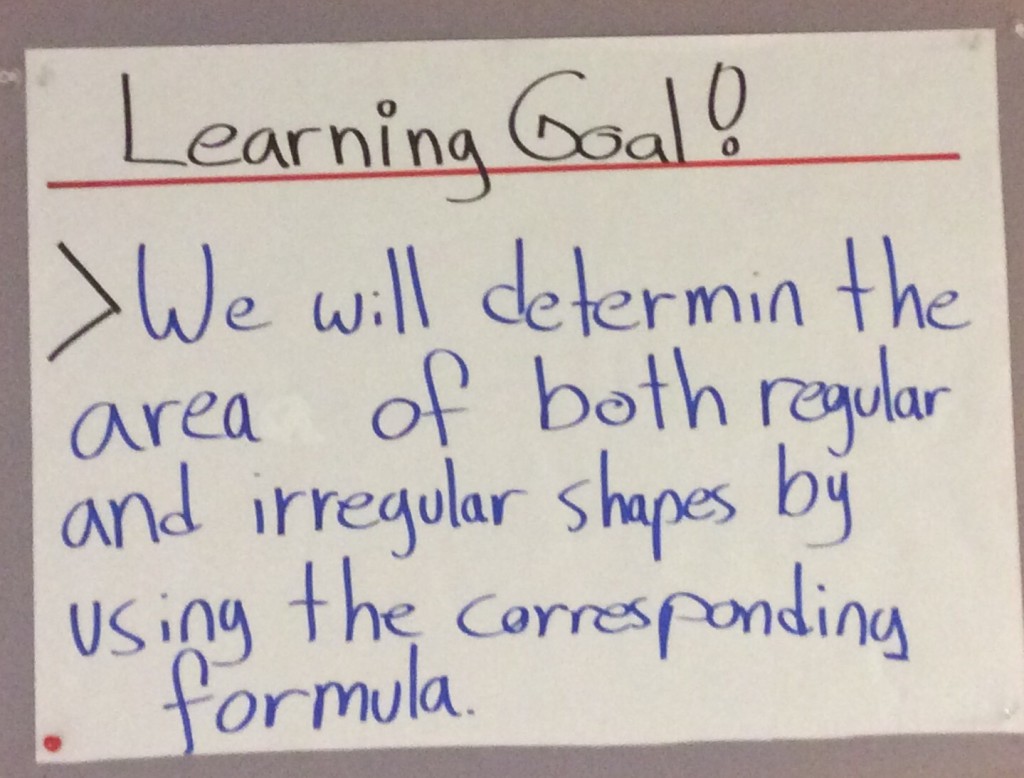 Learning Goal!
> We will determin the
area of both regular
and irregular shapes by
using the corresponding
formula.